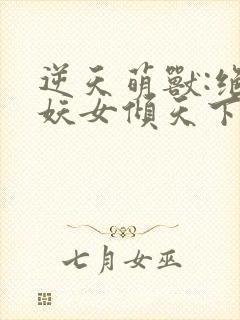 逆天萌獸:絕
妖女傾天下
七月女巫